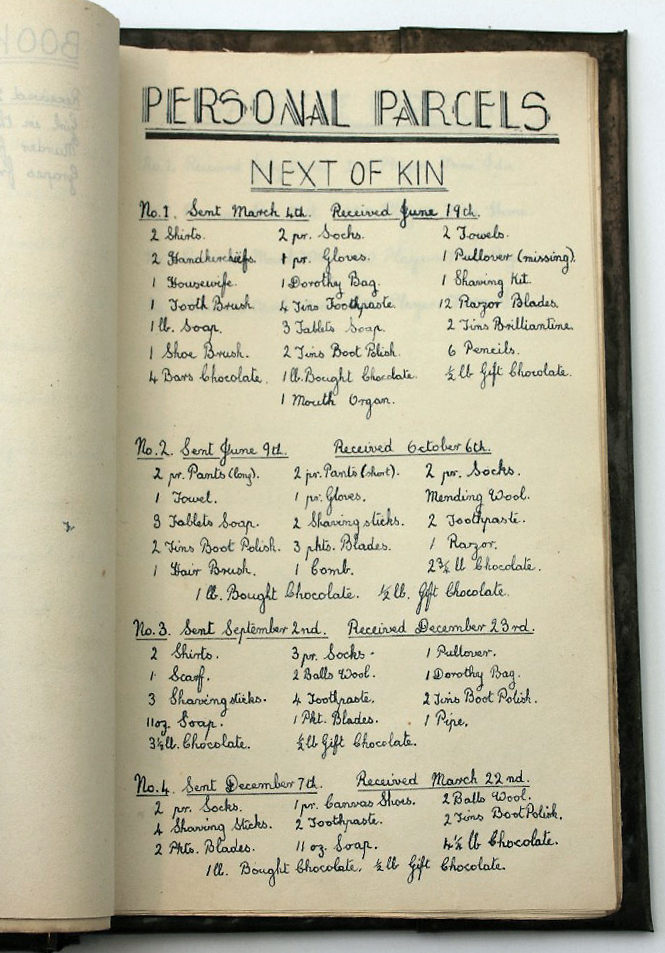 PERSONAL PARCELS
NEXT OF KIN
No.1. Sent March 4th. Received June 19th.
2 Shirts. 2 pr. Socks. 2 Towels.
2 Handkerchiefs. 1 pr. Gloves. 1 Pullover (missing).
1 Housewife. 1 Dorothy Bag. 1 Shaving Kit.
1 Tooth Brush 4 Tins Toothpaste. 12 Razor Blades.
1 lb. Soap. 3 Tablets Soap. 2 Tins Brilliantine.
1 Shoe Brush. 2 Tins Boot Polish. 6 Pencils.
4 Bars Chocolate. 1 lb. Bought Chocolate. ½ lb Gift Chocolate.
1 Mouth Organ.
No.2. Sent June 9th. Received October 6th.
2 pr. Pants (long). 2 pr. Pants (short). 2 pr. Socks.
1 Towel. 1 pr. Gloves. Mending Wool.
3 Tablets Soap. 2 Shaving sticks. 2 Toothpaste.
2 Tins Boot Polish. 3 pkts. Blades. 1 Razor.
1 Hair Brush. 1 Comb. 2¾ lb Chocolate.
1 lb. Bought Chocolate. ½ lb. Gift Chocolate.
No.3. Sent September 2nd. Received December 23rd.
2 Shirts. 3 pr. Socks. 1 Pullover.
1 Scarf. 2 Balls Wool. 1 Dorothy Bag.
3 Shaving sticks. 4 Toothpaste. 2 Tins Boot Polish.
11 oz. Soap. 1 Pkt. Blades. 1 Pipe.
3½ lb. Chocolate. ½ lb Gift Chocolate.
No.4. Sent December 7th. Received March 22nd.
2 pr. Socks. 1 pr. Canvas Shoes. 2 Balls Wool.
4 Shaving Sticks. 2 Toothpaste. 2 Tins Boot Polish.
2 Pkts. Blades. 11 oz. Soap. 4½ lb Chocolate.
1 lb. Bought Chocolate. ½ lb Gift Chocolate.